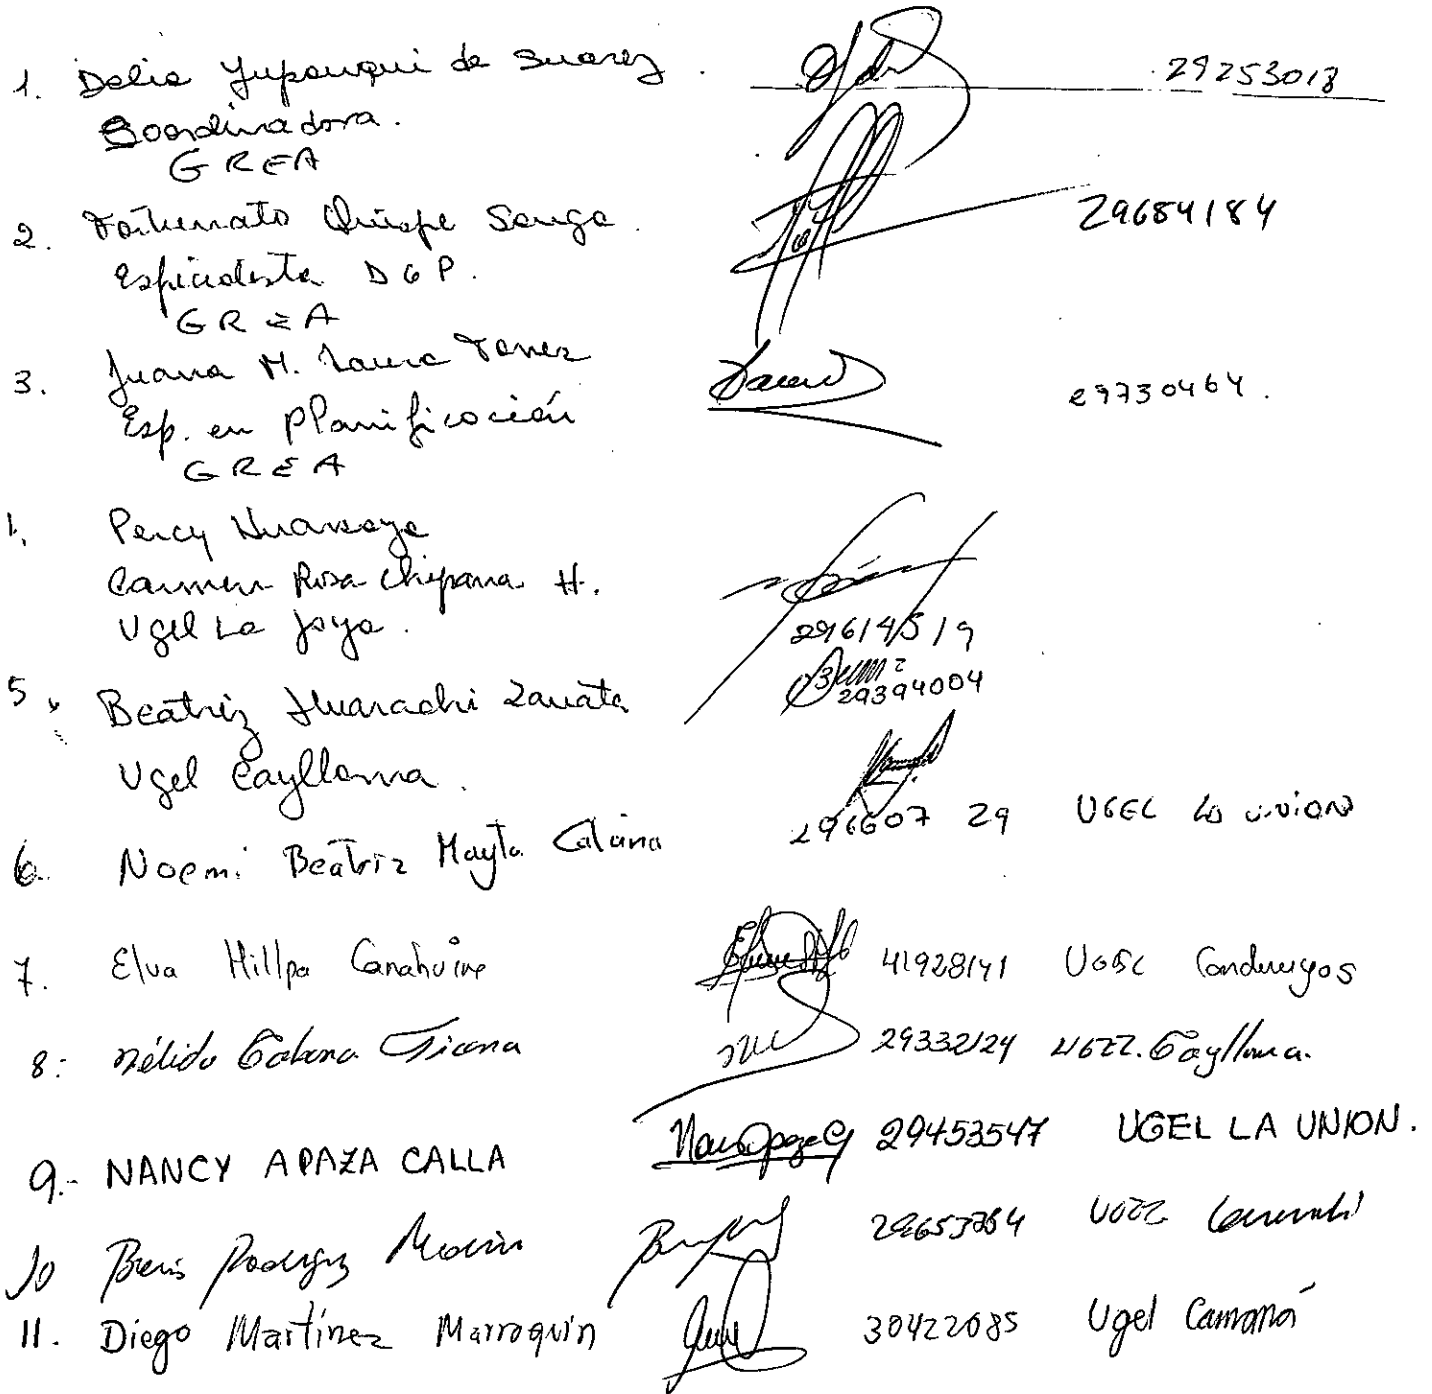 1. Delia Yupanqui de Suarez. 29253018
Coordinadora.
GREA
2. Fortunato Quispe Sanga. 29684184
Especialista DGP.
GREA
3. Juana M. Laura Tanez 29730464.
Esp. en Planificación
GREA
Percy Huarsaya
Carmen Rosa Chipana H.
Ugel La Joya. 29614519
5. Beatriz Huarachi Zavata 29394004
Ugel Caylloma.
6. Noemi Beatriz Mayta 29660729 UGEL La Union
7. Elva Hillpa Canahuire 41928141 UGEL Condesuyos
8: Nélida Cabana Ticona 29332124 UGEL. Caylloma.
9.- NANCY APAZA CALLA 29453547 UGEL LA UNION.
10 Rodriguez UGEL
11. Diego Martínez Marroquín 30422085 Ugel Camaná